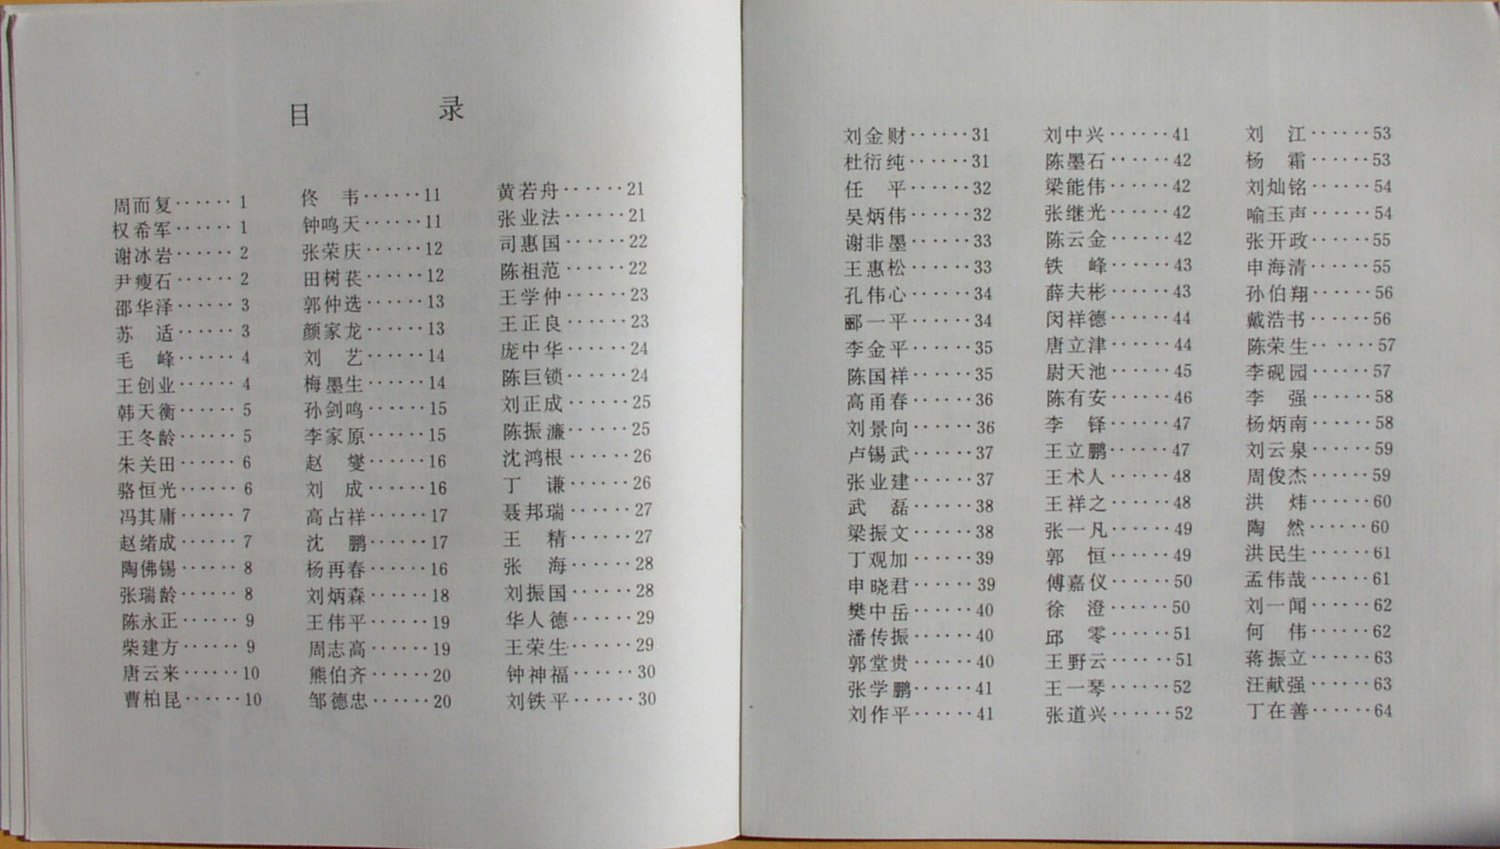 目 录
周而复······ 1
权希军······ 1
谢冰岩······ 2
尹瘦石······ 2
邵华泽······ 3
苏 适······ 3
毛 峰······ 4
王创业······ 4
韩天衡······ 5
王冬龄······ 5
朱关田······ 6
骆恒光······ 6
冯其庸······ 7
赵绪成······ 7
陶佛锡······ 8
张瑞龄······ 8
陈永正······ 9
柴建方······ 9
唐云来······10
曹柏昆······10
佟 韦······11
钟鸣天······11
张荣庆······12
田树苌······12
郭仲选······13
颜家龙······13
刘 艺······14
梅墨生······14
孙剑鸣······15
李家原······15
赵 燮······16
刘 成······16
高占祥······17
沈 鹏······17
杨再春······16
刘炳森······18
王伟平······19
周志高······19
熊伯齐······20
邹德忠······20
黄若舟······21
张业法······21
司惠国······22
陈祖范······22
王学仲······23
王正良······23
庞中华······24
陈巨锁······24
刘正成······25
陈振濂······25
沈鸿根······26
丁 谦······26
聂邦瑞······27
王 精······27
张 海······28
刘振国······28
华人德······29
王荣生······29
钟神福······30
刘铁平······30
刘金财······31
杜衍纯······31
任 平······32
吴炳伟······32
谢非墨······33
王惠松······33
孔伟心······34
郦一平······34
李金平······35
陈国祥······35
高甬春······36
刘景向······36
卢锡武······37
张业建······37
武 磊······38
梁振文······38
丁观加······39
申晓君······39
樊中岳······40
潘传振······40
郭堂贵······40
张学鹏······41
刘作平······41
刘中兴······41
陈墨石······42
梁能伟······42
张继光······42
陈云金······42
铁 峰······43
薛夫彬······43
闵祥德······44
唐立津······44
尉天池······45
陈有安······46
李 铎······47
王立鹏······47
王术人······48
王祥之······48
张一凡······49
郭 恒······49
傅嘉仪······50
徐 澄······50
邱 零······51
王野云······51
王一琴······52
张道兴······52
刘 江······53
杨 霜······53
刘灿铭······54
喻玉声······54
张开政······55
申海清······55
孙伯翔······56
戴浩书······56
陈荣生······57
李砚园······57
李 强······58
杨炳南······58
刘云泉······59
周俊杰······59
洪 炜······60
陶 然······60
洪民生······61
孟伟哉······61
刘一闻······62
何 伟······62
蒋振立······63
汪献强······63
丁在善······64